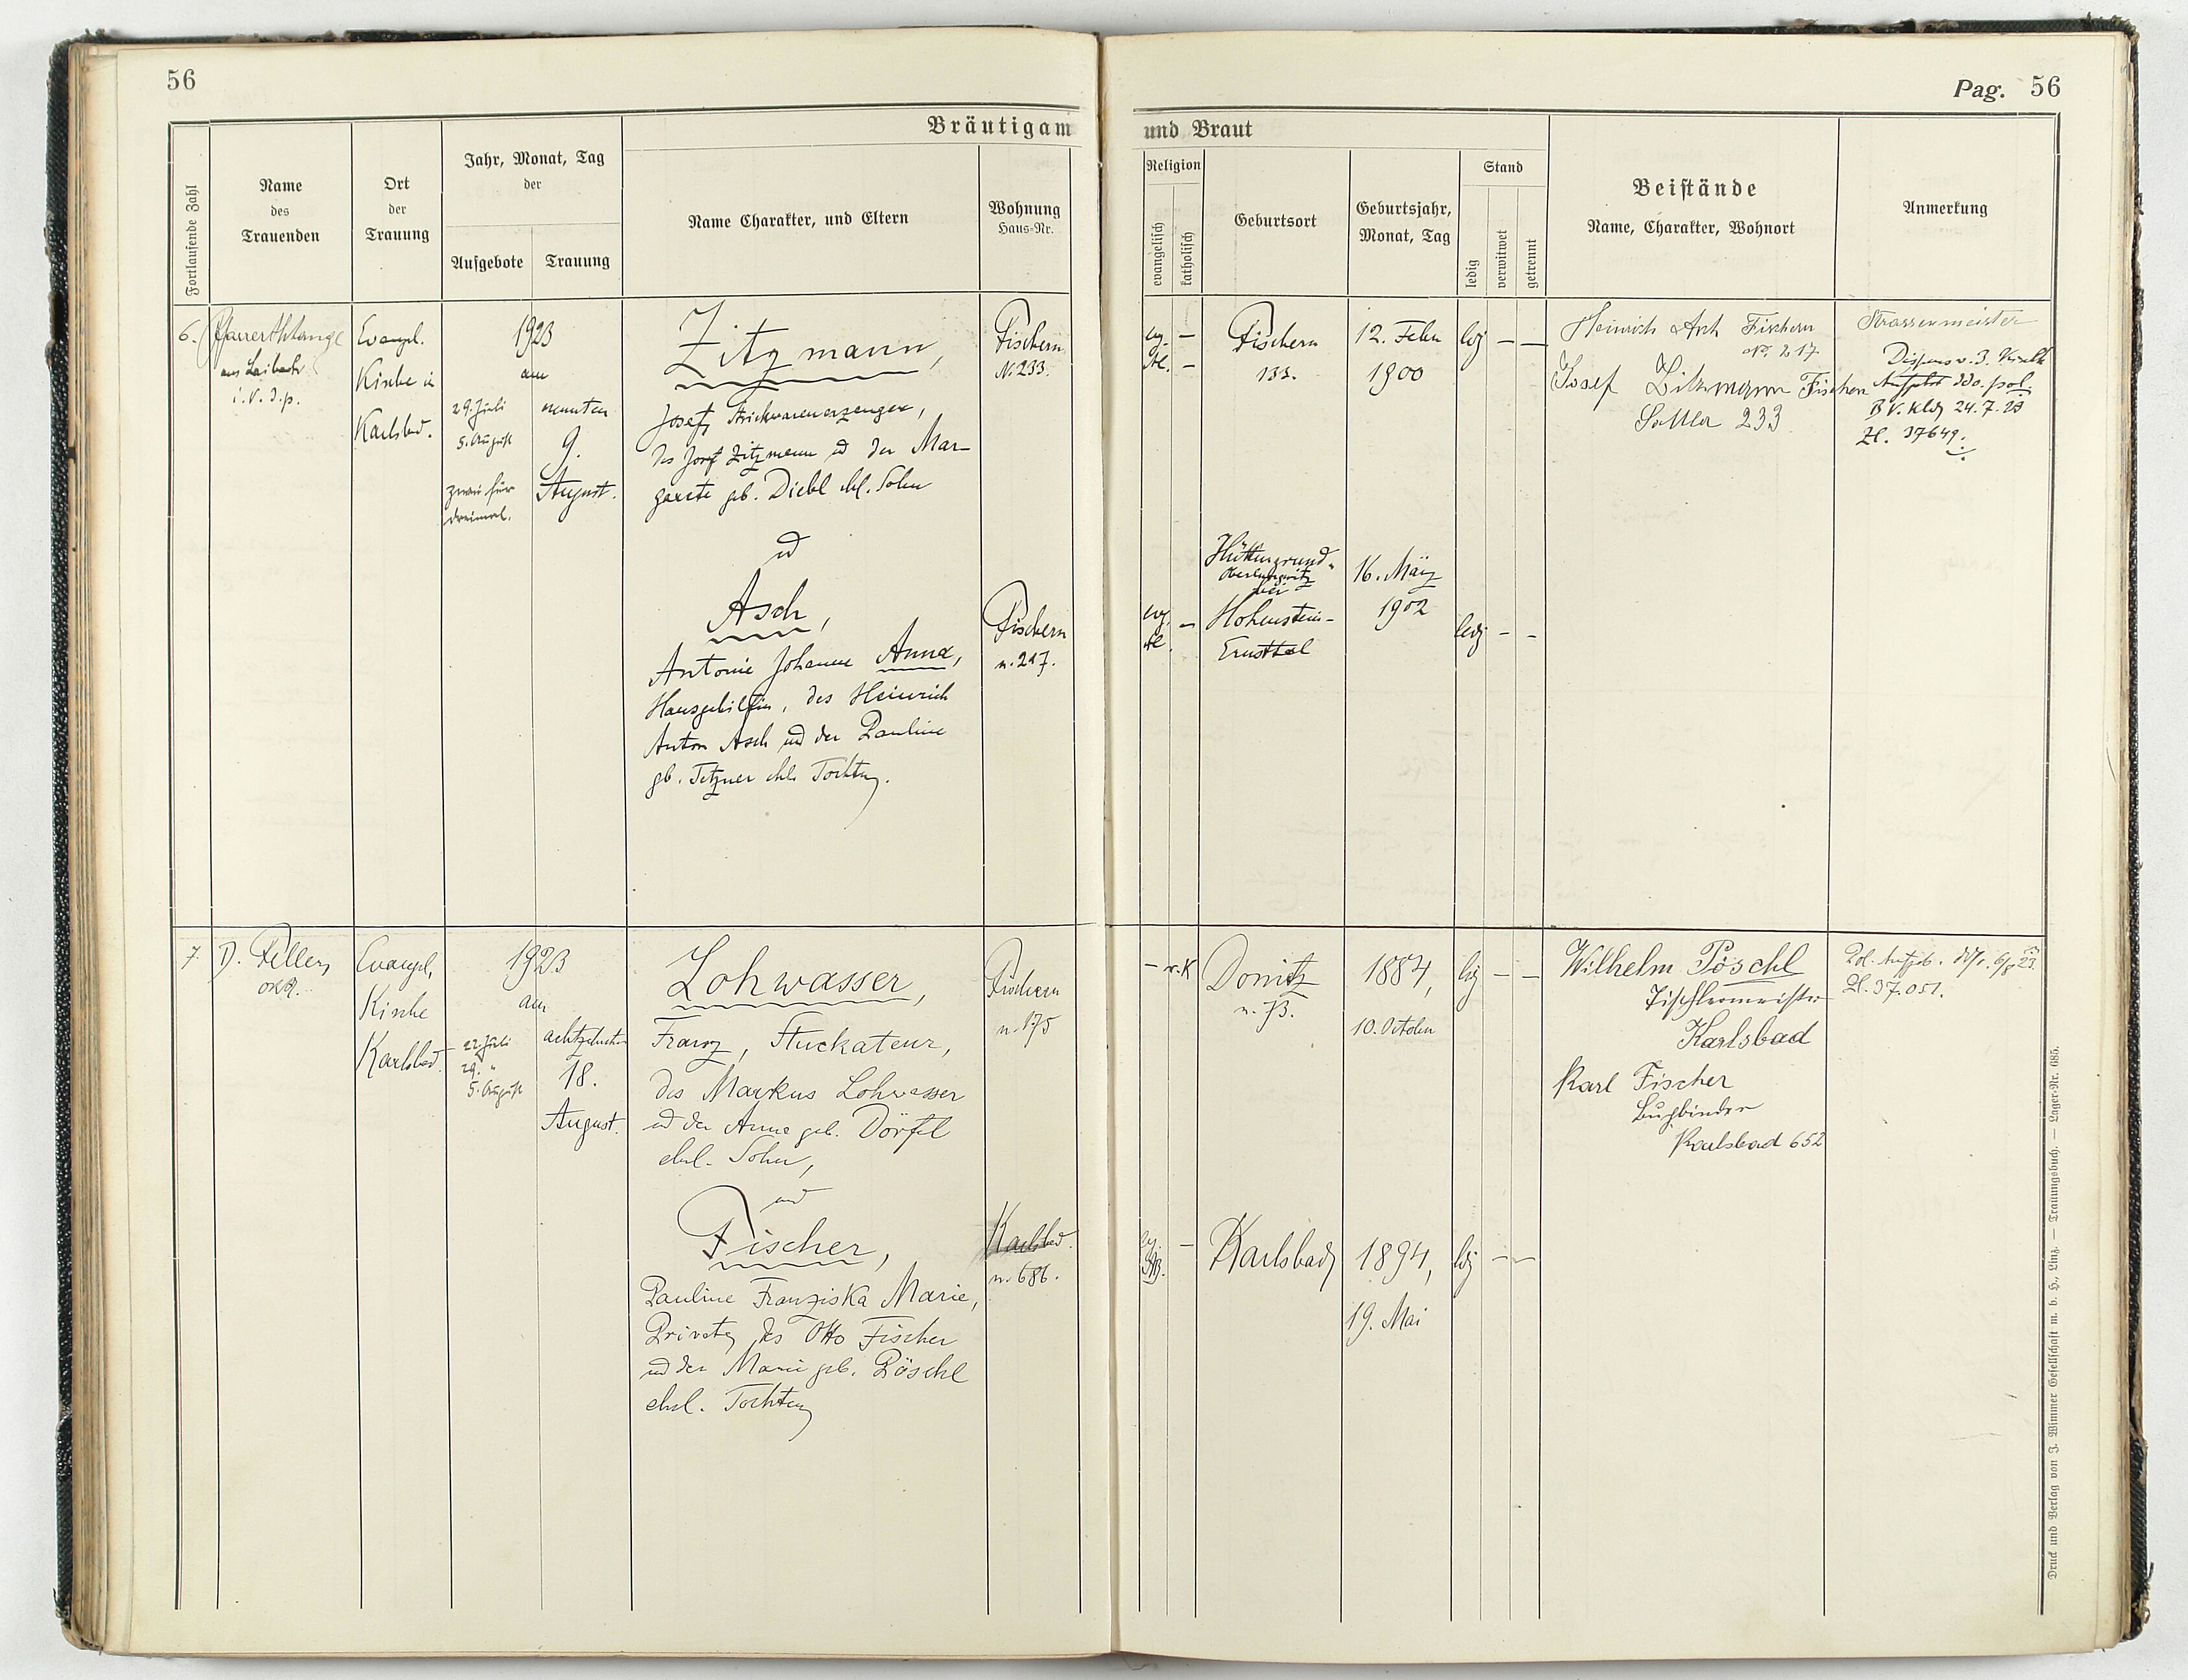 56
Pag. 56
Bräutigam
und Braut
Fortlaufende Zahl
Name
des
Trauenden
Ort
der
Trauung
Jahr, Monat, Tag
der
Aufgebote
Trauung
Name Charakter, und Eltern
Wohnung
Haus-Nr.
Religion
evangelisch
katholisch
Geburtsort
Geburtsjahr,
Monat, Tag
Stand
ledig
verwitwet
getrennt
Beistände
Name, Charakter, Wohnort
Anmerkung
6.
aus Laibach
i. V. d. p.
Evangel.
Kirche in
Karlsbad.
1923
am
29. Juli
5. August
zwei für
dreimal.
neunten
9.
August.
Zitzmann,
Josef, Strickwarenerzeuger,
des Josef Zitzmann ud der Mar-
garete geb. Diebl ehl. Sohn
ud
Asch,
Antonie Johanne Anna,
Hausgehilfin, des Heinrich
Anton Asch ud der Pauline
gb. Tetzner ehl. Tochter.
Fischern
N. 233.
Fischern
n. 217.
ev. –
–
Fischern
133.
12. Feber
1900
ldg – –
Heinrich Asch Fischern
No. 217
Josef Zitzmann Fischern
Sattler 233
Strassenmeister
Dispens v. 3. 
Aufgebot ddo. pol.
B.V. Klbd 24.7.23
Zl. 37649.
ev. –
Hüttengrund-
Oberlungwitz
bei
Hohenstein-
Ernstthal
16. März
1902
ledg – –
7
D. Feller,
Evangel.
Kirche
Karlsbad.
1923
am
22. Juli
29. "
5. August
achtzehnten
18.
August.
Lohwasser,
Franz, Stuckateur,
des Markus Lohwasser
ud der Anna geb. Dörfel
ehel. Sohn,
und
Fischer,
Pauline Franziska Marie,
Private, des Otto Fischer
ud der Marie geb. Pöschl
ehel. Tochter
Fischern
n. 175
Karlsbad.
n. 686.
– r.K
Donitz
n. 73.
1884,
10. October
ldg – –
Wilhelm Pöschl
Tischlermeister
Karlsbad
Karl Fischer
Buchbinder
Karlsbad 652
Pol. Aufgeb. ddo. 6/8 23.
Zl. 37.051.
ev. –
AB.
Karlsbad
1894,
19. Mai
ldg – –
Druck und Verlag von J. Wimmer Gesellschaft m. b. H., Linz. — Trauungsbuch. — Lager-Nr. 685.